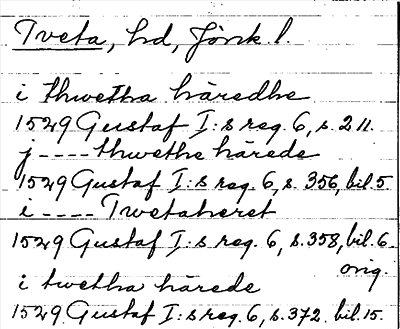 Tveta, hd, Jönk l.
i thwetha häredhe
1529 Gustaf I:s reg. 6, s. 211.
j ---- thwethe härede
1529 Gustaf I:s reg. 6, s. 356, bil. 5
i ---- Twetaheret
1529 Gustaf I:s reg. 6, s. 358, bil. 6
orig.
i twetha härede
1529 Gustaf I:s reg. 6, s. 372. bil. 15.